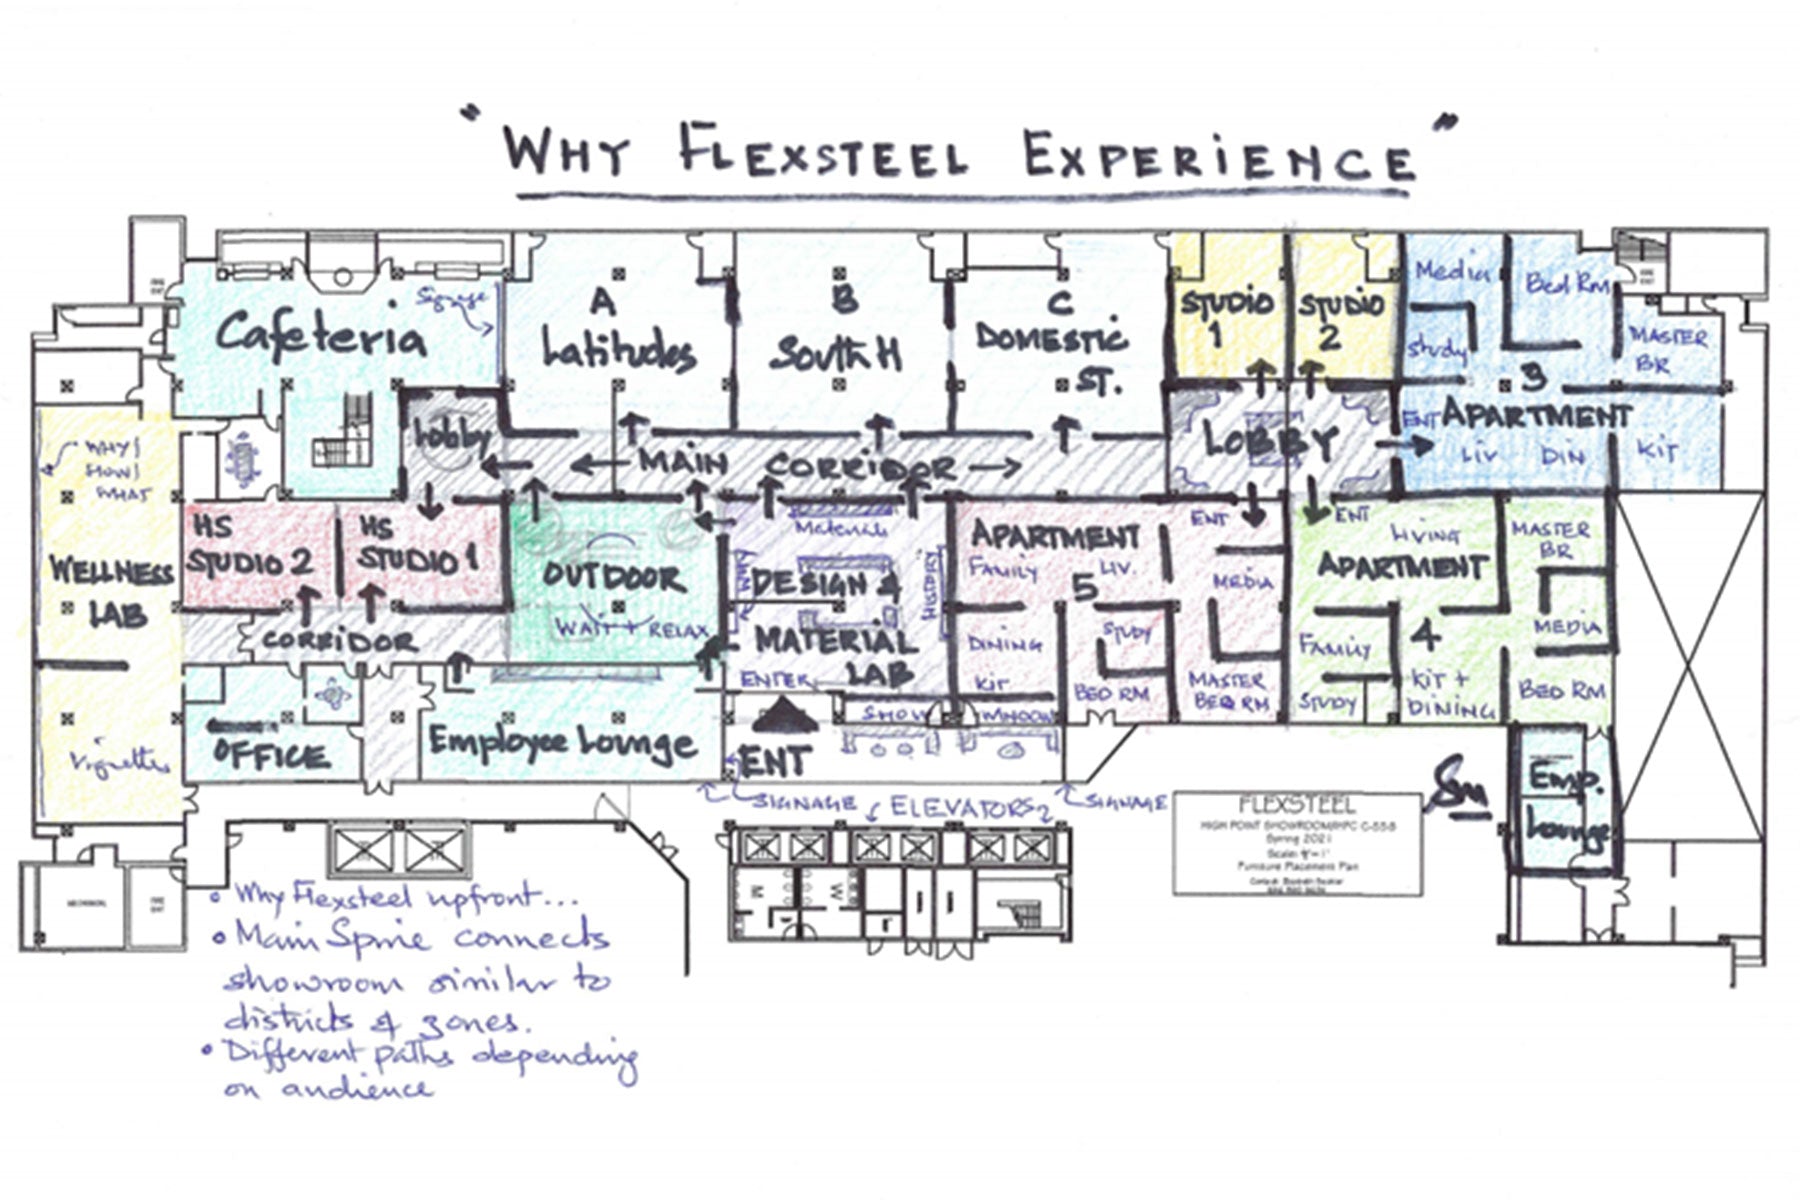 "WHY FLEXSTEEL EXPERIENCE"
Cafeteria
Signage
A
Latitudes
B
South H
C
DOMESTIC
ST.
STUDIO
1
STUDIO
2
Media
Bed RM
Study
MASTER
BR
3
APARTMENT
ENT
LIV
DIN
KIT
WHY/
HOW/
WHAT
Lobby
MAIN CORRIDOR
LOBBY
WELLNESS
LAB
Vignettes
HS
STUDIO 2
HS
STUDIO 1
OUTDOOR
WAIT + RELAX
Materials
WHY
DESIGN &
MATERIAL
LAB
HISTORY
ENTER
APARTMENT
5
FAMILY
LIV.
ENT
MEDIA
DINING
STUDY
KIT
BED RM
MASTER
BED RM
ENT
LIVING
APARTMENT
4
MASTER
BR
MEDIA
FAMILY
STUDY
KIT +
DINING
BED RM
CORRIDOR
OFFICE
Employee Lounge
ENT
SHOW WINDOW
SIGNAGE
ELEVATORS
SIGNAGE
Emp.
Lounge
FLEXSTEEL
HIGH POINT SHOWROOM/IHFC C-558
Spring 2021
Furniture Placement Plan
M
W
• Why Flexsteel upfront...
• Main Spine connects
showroom similar to
districts & zones.
• Different paths depending
on audience